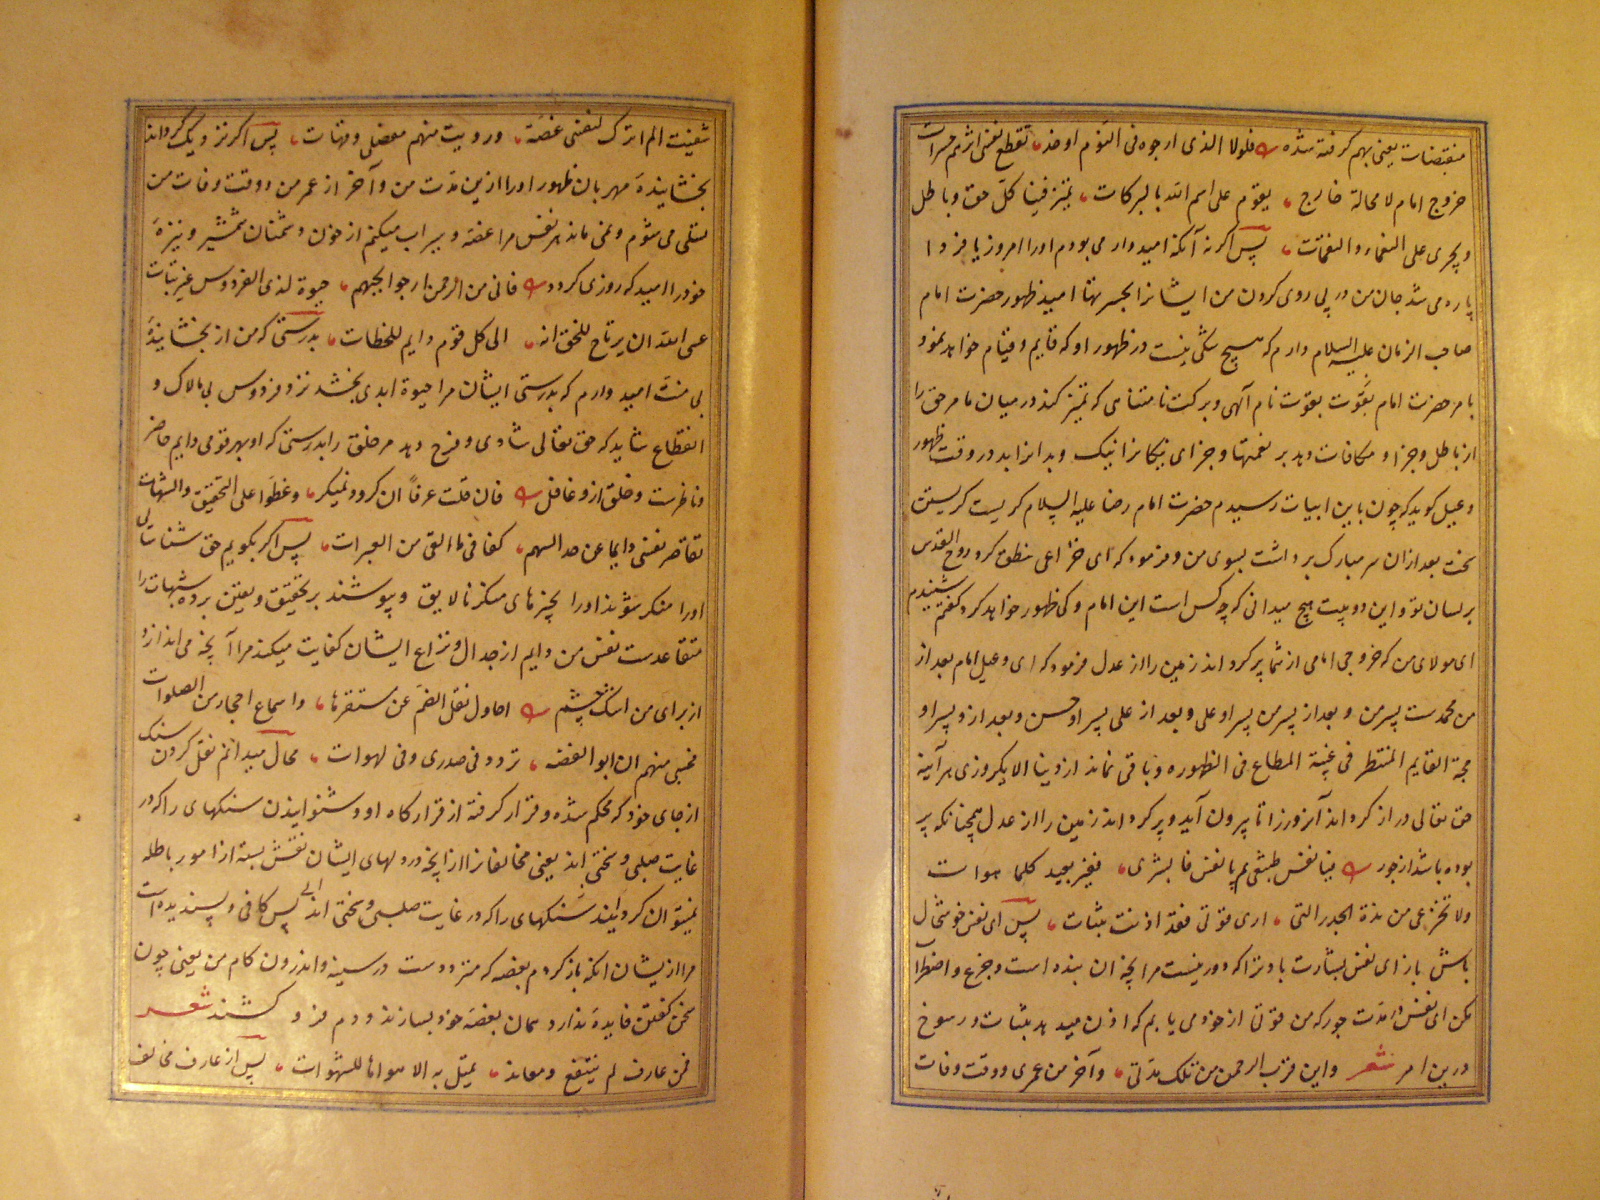 منقبضات یعنی بهم گرفته شده فلولا الذی ارجوه فی الیوم او غد تقطع نفسی اثرهم حسرات
خروج امام لا محالة خارج یقوم علی اسم الله بالبرکات یمیز فینا کل حق و باطل
و یجری علی النعماء و النقمات پس اگر نه آنکه امیدوار می بودم او را امروز یا فردا
پاره می شد جان من در پی روی کردن من ایشانرا بحسرتها امید ظهور حضرت امام
صاحب الزمان علیه السلام دارم که هیچ شکی نیست در ظهور او که قایم و قیام خواهد نمود
بامر حضرت امام بقوت بقوت نام آلهی و برکت نامتناهی که تمیز کند در میان ما مر حق را
از باطل و جزا و مکافات دهد بر نعمتها و جزای نیکانرا نیک و بدانرا بد در وقت ظهور
دعبل کوید که چون باین ابیات رسیدم حضرت امام رضا علیه السلام کریست کریستن
سخت بعد از ان سر مبارک برداشت بسوی من و فرمود که ای خزاعی نطق کرد روح القدس
بر لسان تو این دو بیت هیچ میدانی که چه کس است این امام و کی ظهور خواهد کرد کفتم شنیدم
ای مولای من که خروجی امامی از شما پر کرداند زمین را از عدل فرمود که ای دعبل امام بعد از
من محمدست پسر من و بعد از پسر من پسر او علی و بعد از علی پسر او حسن و بعد ازو پسر او
حجة القایم المنتظر فی غیبته المطاع فی الظهوره و باقی نماند از دنیا الا یکروزی هر آینه
حق تعالی دراز کرداند آنروز را تا بیرون آید و پر کرداند زمین را از عدل همچنانکه پر
بوده باشد از جور فیا نفس طیبی ثم یا نفس فابشری فغیر بعید کلما هو آت
و لا تجزعی من مدة الجور اننی اری قوتی قد اذنت بثبات پس ای نفس خوشحال
باش باز ای نفس بشارت باد ترا که دور نیست مر آنچه ان آینده است و جزع و اضطراب
مکن ای نفس در مدت جور که من قوتی از خود می یابم که اذن میدهد بثبات و رسوخ
درین امر شعر و این قرب الرحمن من تلک مدتی و آخر من عمری و وقت وفات
شفیت و لم اترک لنفسی غصة و رویت منهم منصلی و قنات پس اگر نزدیک گرداند
بخشاینده مهربان ظهور او را ازین مدت من و آخر از عمر من و وقت وفات من
متسلی می شوم و نمی ماند بر نفس مرا غصه و سیراب میکنم از خون دشمنان شمشیر و نیزهٔ
خود را امید که روزی کردد فانی من الرحمن ارجو بحبهم حیوة لدی الفردوس غیر بتات
عسی الله ان یرتاح للخلق انه الی کل قوم دایم للحظات بدرستی که من از بخشایندهٔ
بی منت امید دارم که بدرستی ایشان مرا حیوة ابدی بخشد نزد فردوس بی هلاک و
انقطاع شاید که حق تعالی شادی و فرح دهد مر خلق را بدرستی که او بهر قومی دایم حاضر
و ناظرست و خلق ازو غافل فان قلت عرفا انکروه بمنکر و غطوا علی التحقیق بالشبهات
تقاصر نفسی دایما عن جدالهم کفانی ما القی من العبرات پس اگر بگویم حق شناسانی
او را منکر شوند او را بچیزهای منکر نالایق و بپوشند بر تحقیق و یقین پرده شبهات را
متقاعدست نفس من دایم از جدال و نزاع ایشان کفایت میکند مرا آنچه می اندازد
از برای من اشک چشم احاول نقل الصم عن مستقرها و اسماع احجار من الصلوات
فحسبی منهم ان ابوء بغصة تردد فی صدری و فی لهوات محال میدانم نقل کردن سنک
از جای خود که محکم شده و قرار گرفته از قرارگاه او و شنوایندن سنکهای را که در
غایت صلبی و سختی اند یعنی مخالفانرا از آنچه در دلهای ایشان نقش بسته از امور باطله
نمیتوان گردانید سنکهای را که در غایت صلبی و سختی اند پس کافی و پسندیده است
مرا ازیشان انکه باز کردم بغصه که متردد ست در سینه و اندرون کام من یعنی چون
سخن کفتن فایده ندارد همان بغصه خود بسازند و دم فرو کشند شعر
فمن عارف لم ینتفع و معاند تمیل به الاهواء للشهوات پس از عارف مخالف